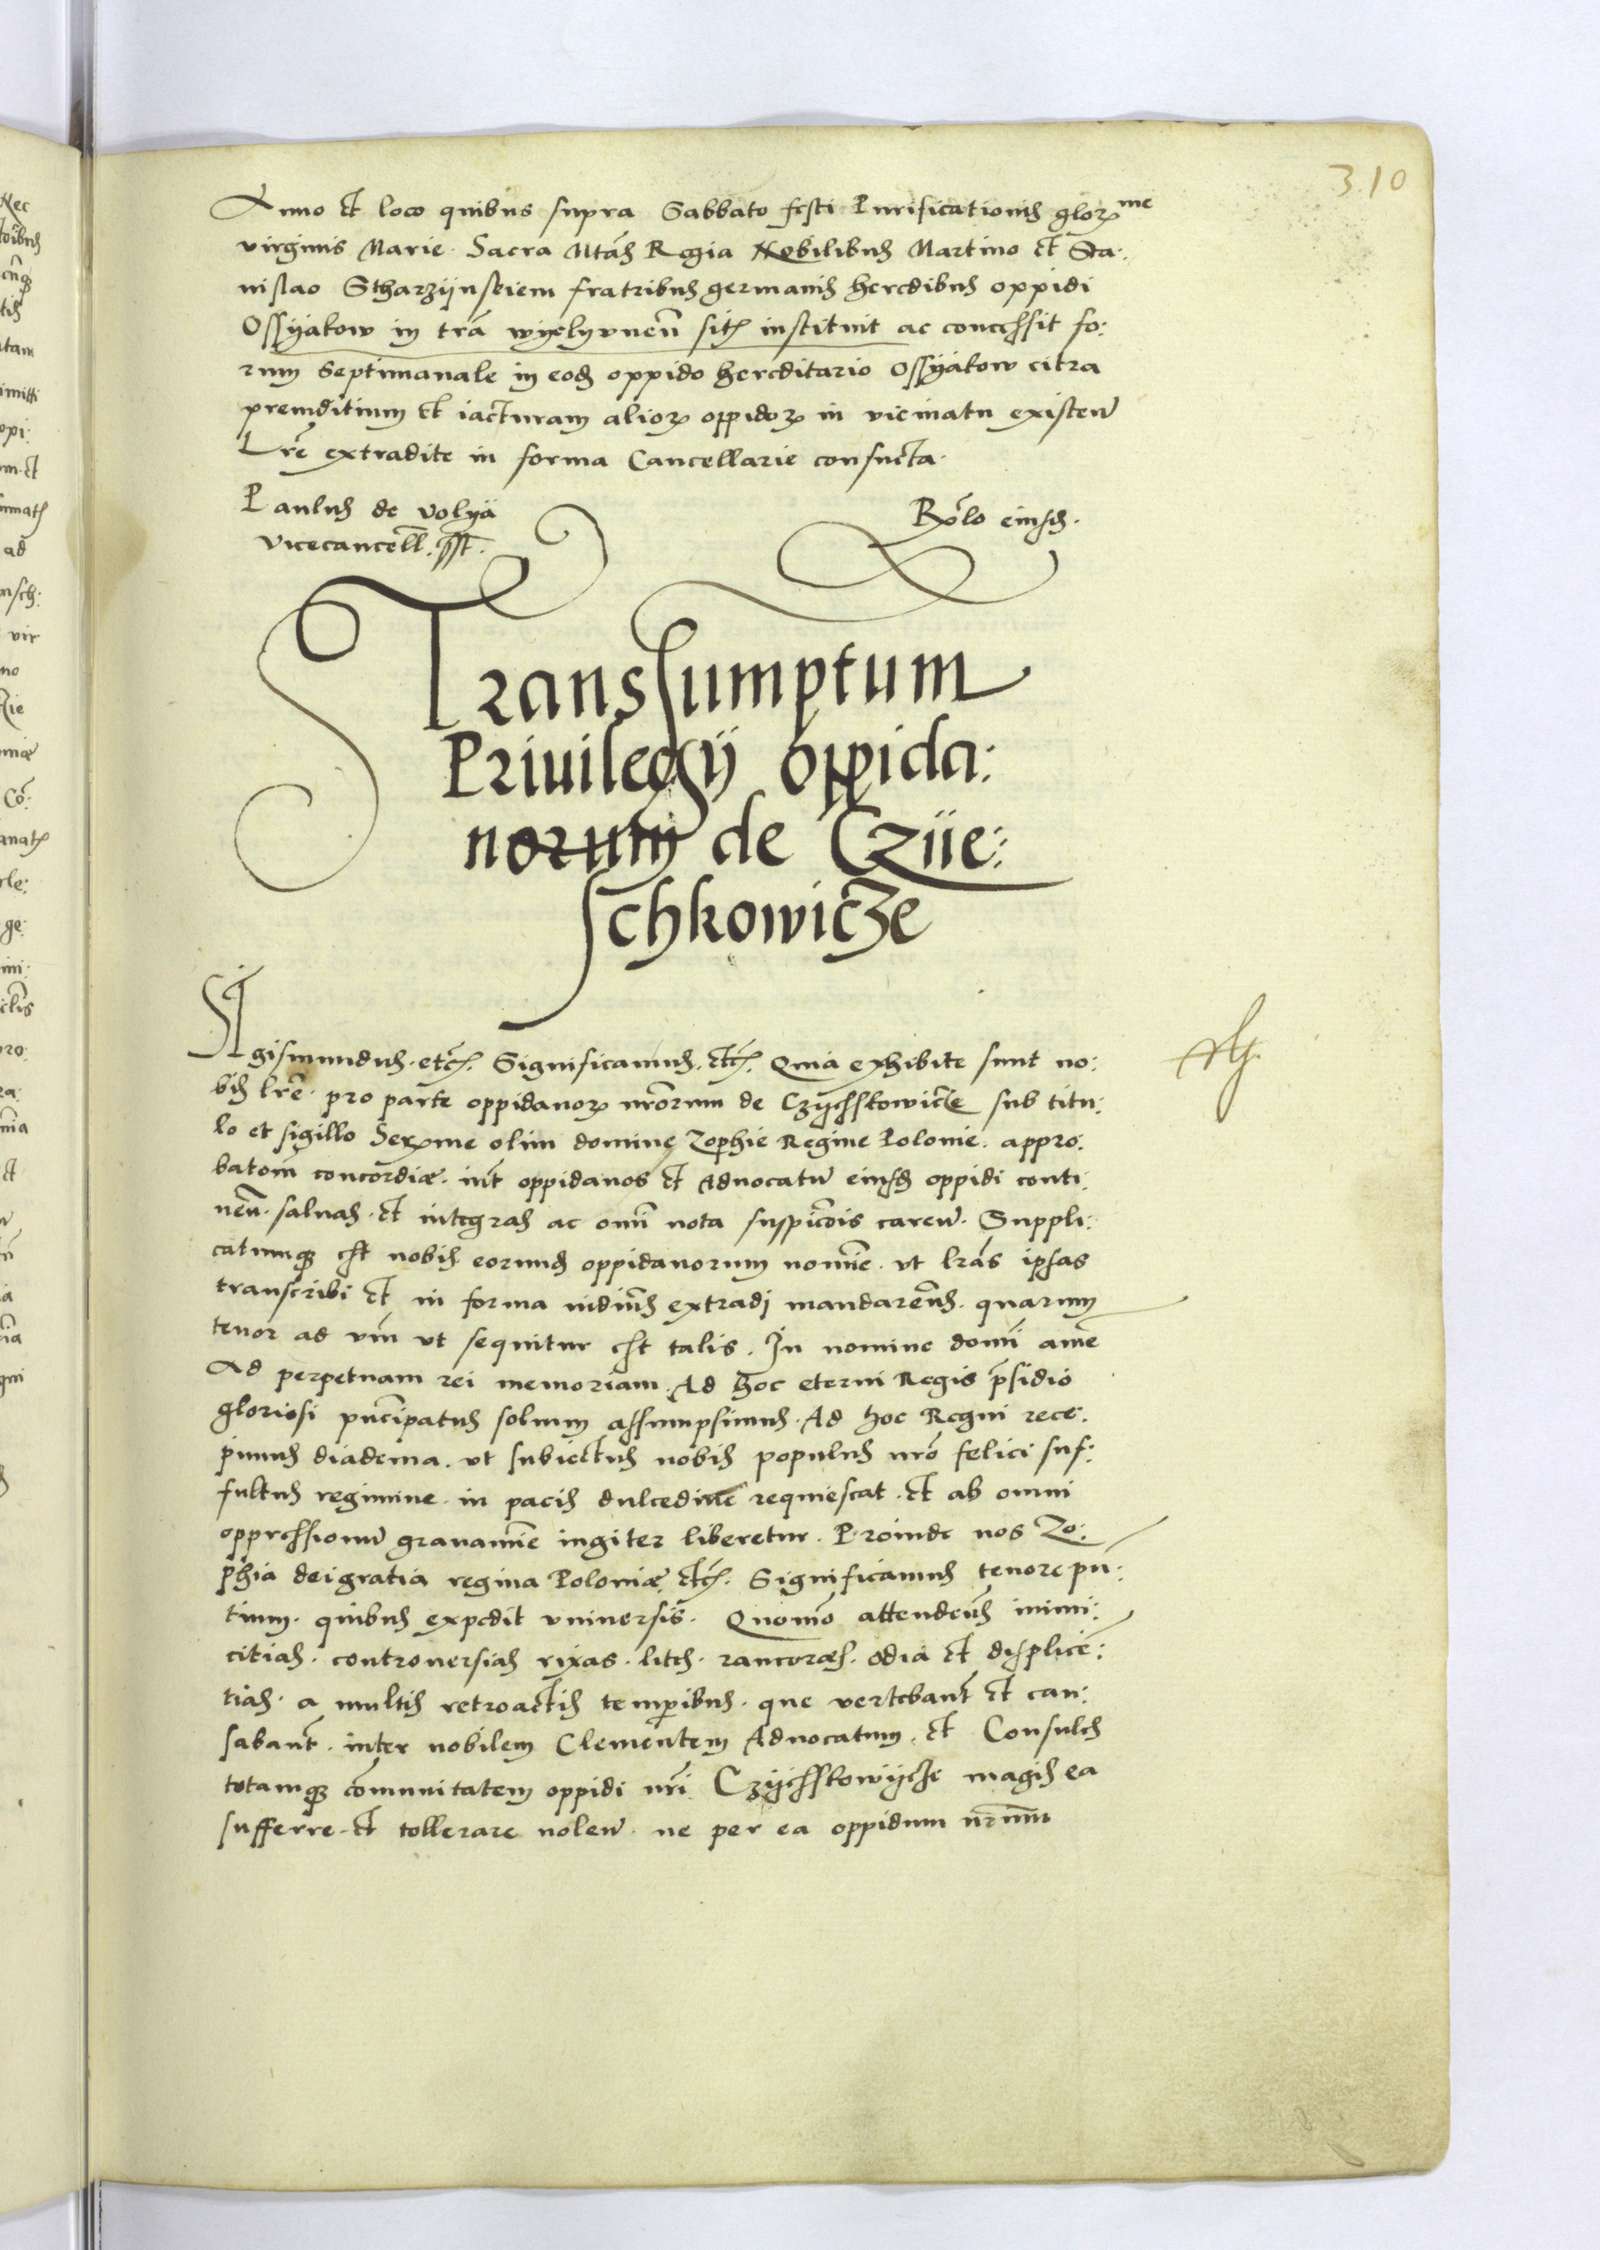 310
Anno et loco quibus supra Sabbato festi Purificationis glor^me
virginis Marie. Sacra Mtas Regia Nobilibus Martino et Sta:
nislao Stharzijnskiem fratribus germanis heredibus oppidi
Ossyakow in tra wyelyvnen sit institnit ac concessit fo:
rum Septimanale in eod oppido hereditario Ossyakow citra
preiuditium et iacturam alior oppidor in vicinatu existen
Lre extradite in forma Cancellarie consueta.
Paulus de Volya
Vicecancell. sst.
Relo eiusd.
Transsumptum
Privilegij oppida:
norum de Czije:
schkowicze
Sigismundus. etc. Significamus. etc. Quia exhibite sunt no:
bis lre. pro parte oppidanor nrorum de Czyeschkowicze sub titu:
lo et sigillo Serme olim domine Zophie Regine Polonie. appro:
batom concordiæ. int oppidanos et Advocatu eiusd oppidi conti:
nen. salvas. et integras ac omni nota suspicois caren. Suppli:
catumque est nobis eorund oppidanorum nomine. ut lras ipsas
transcribi et in forma iudiuis extradi mandaremus. quarum
tenor ad vm ut sequitur est talis. In nomine domi ame
Ad perpetuam rei memoriam. Ad hoc eterni Regis psidio
gloriosi pncipatus solium assumpsimus. Ad hoc Regni rece:
pimus diadema. ut subiectus nobis populus nro felici suf:
fultus regimine. in pacis dulcedine requiescat. et ab omni
oppressionu gravamine iugiter liberetur. Proinde nos Zo:
phia dei gratia regina Poloniæ etc. Significamus tenore pn:
tium. quibus expedit universis. Quomo attendens inimi:
citias. controversias rixas. lites. rancores. odia et displice:
tias. a multis retroactis temporibus. que vertebant et cau:
sabant. inter nobilem Clementem Advocatum. et Consules
totamque communitatem oppidi nri Czyeschkowycze magis ea
sufferre. et tollerare nolen. ne per ea oppidum nrum